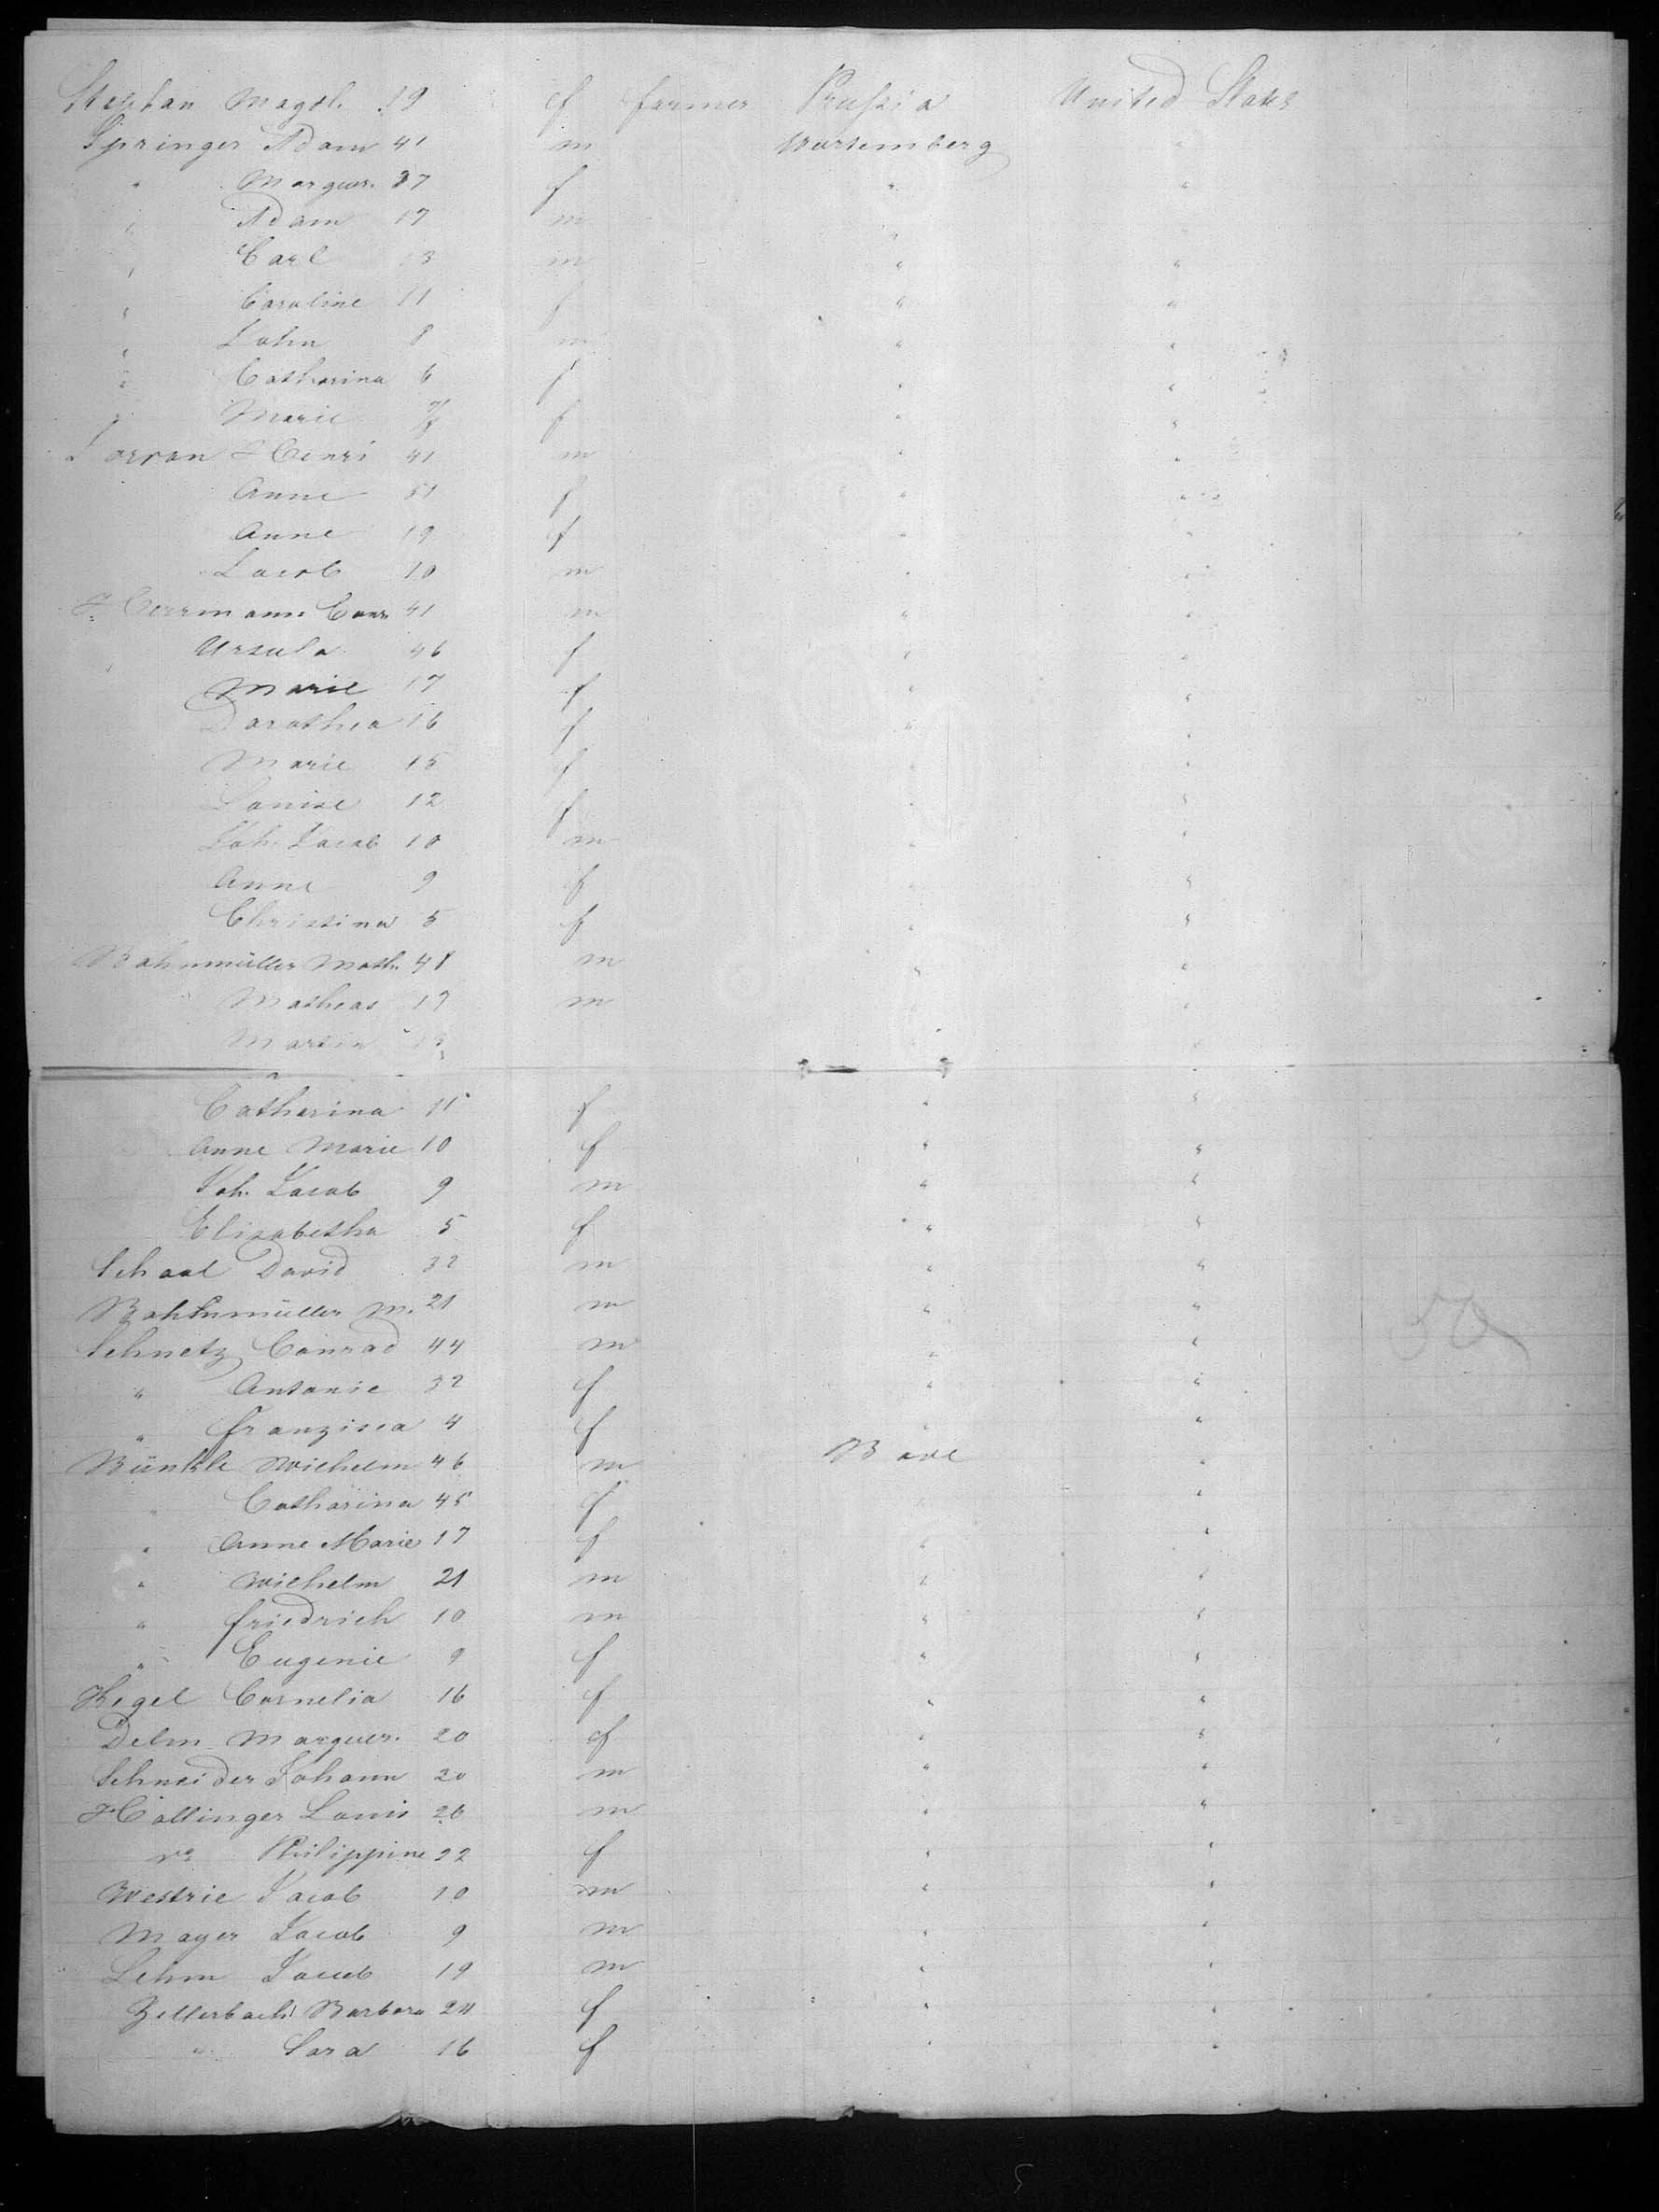 Stephan Magd. 19 f farmer Prussia United States
Springer Adam 41 m Wurtemberg "
" Marguer. 37 f " "
" Adam 17 m "
" Carl 13 m " "
" Caroline 11 f " "
" John 8 m " "
" Catharina 6 f " "
" Marie f " "
Henri 41 m " "
Anne 51 f " "
Anne 19 f " "
Jacob 10 m " "
Herrmann Conr 41 m " "
Ursula 46 f " "
Marie 17 f " "
Dorothea 16 f " "
Marie 15 f " "
Louise 12 f " "
Joh. Jacob 10 m " "
Anne 9 f " "
Christina 5 f " "
Bahnmüller Math. 48 m " "
Matheas 17 m " "
Martin 13 " "
Catharina 11 f " "
Anne Marie 10 f " "
Joh. Jacob 9 m " "
Elisabetha 5 f " "
Schaal David 32 m " "
Bahnmüller M. 21 m " "
Schnetz Conrad 44 m " "
" Antonie 32 f " "
" Franzisca 4 f " "
Bünkle Wilhelm 46 m Bade "
" Catharina 45 f "
" Anne Marie 17 f " "
" Wilhelm 21 m " "
" Friedrich 10 m " "
" Eugenie 9 f " "
Kegel Cornelia 16 f " "
Delm Marguer. 20 f " "
Schneider Johann 20 m " "
Hallinger Louis 26 m " "
Philippine 22 f " "
Westrie Jacob 10 m " "
Mayer Jacob 9 m " "
Lehm Jacob 19 m " "
Zellerbach Barbara 24 f " "
" Sara 16 f " "